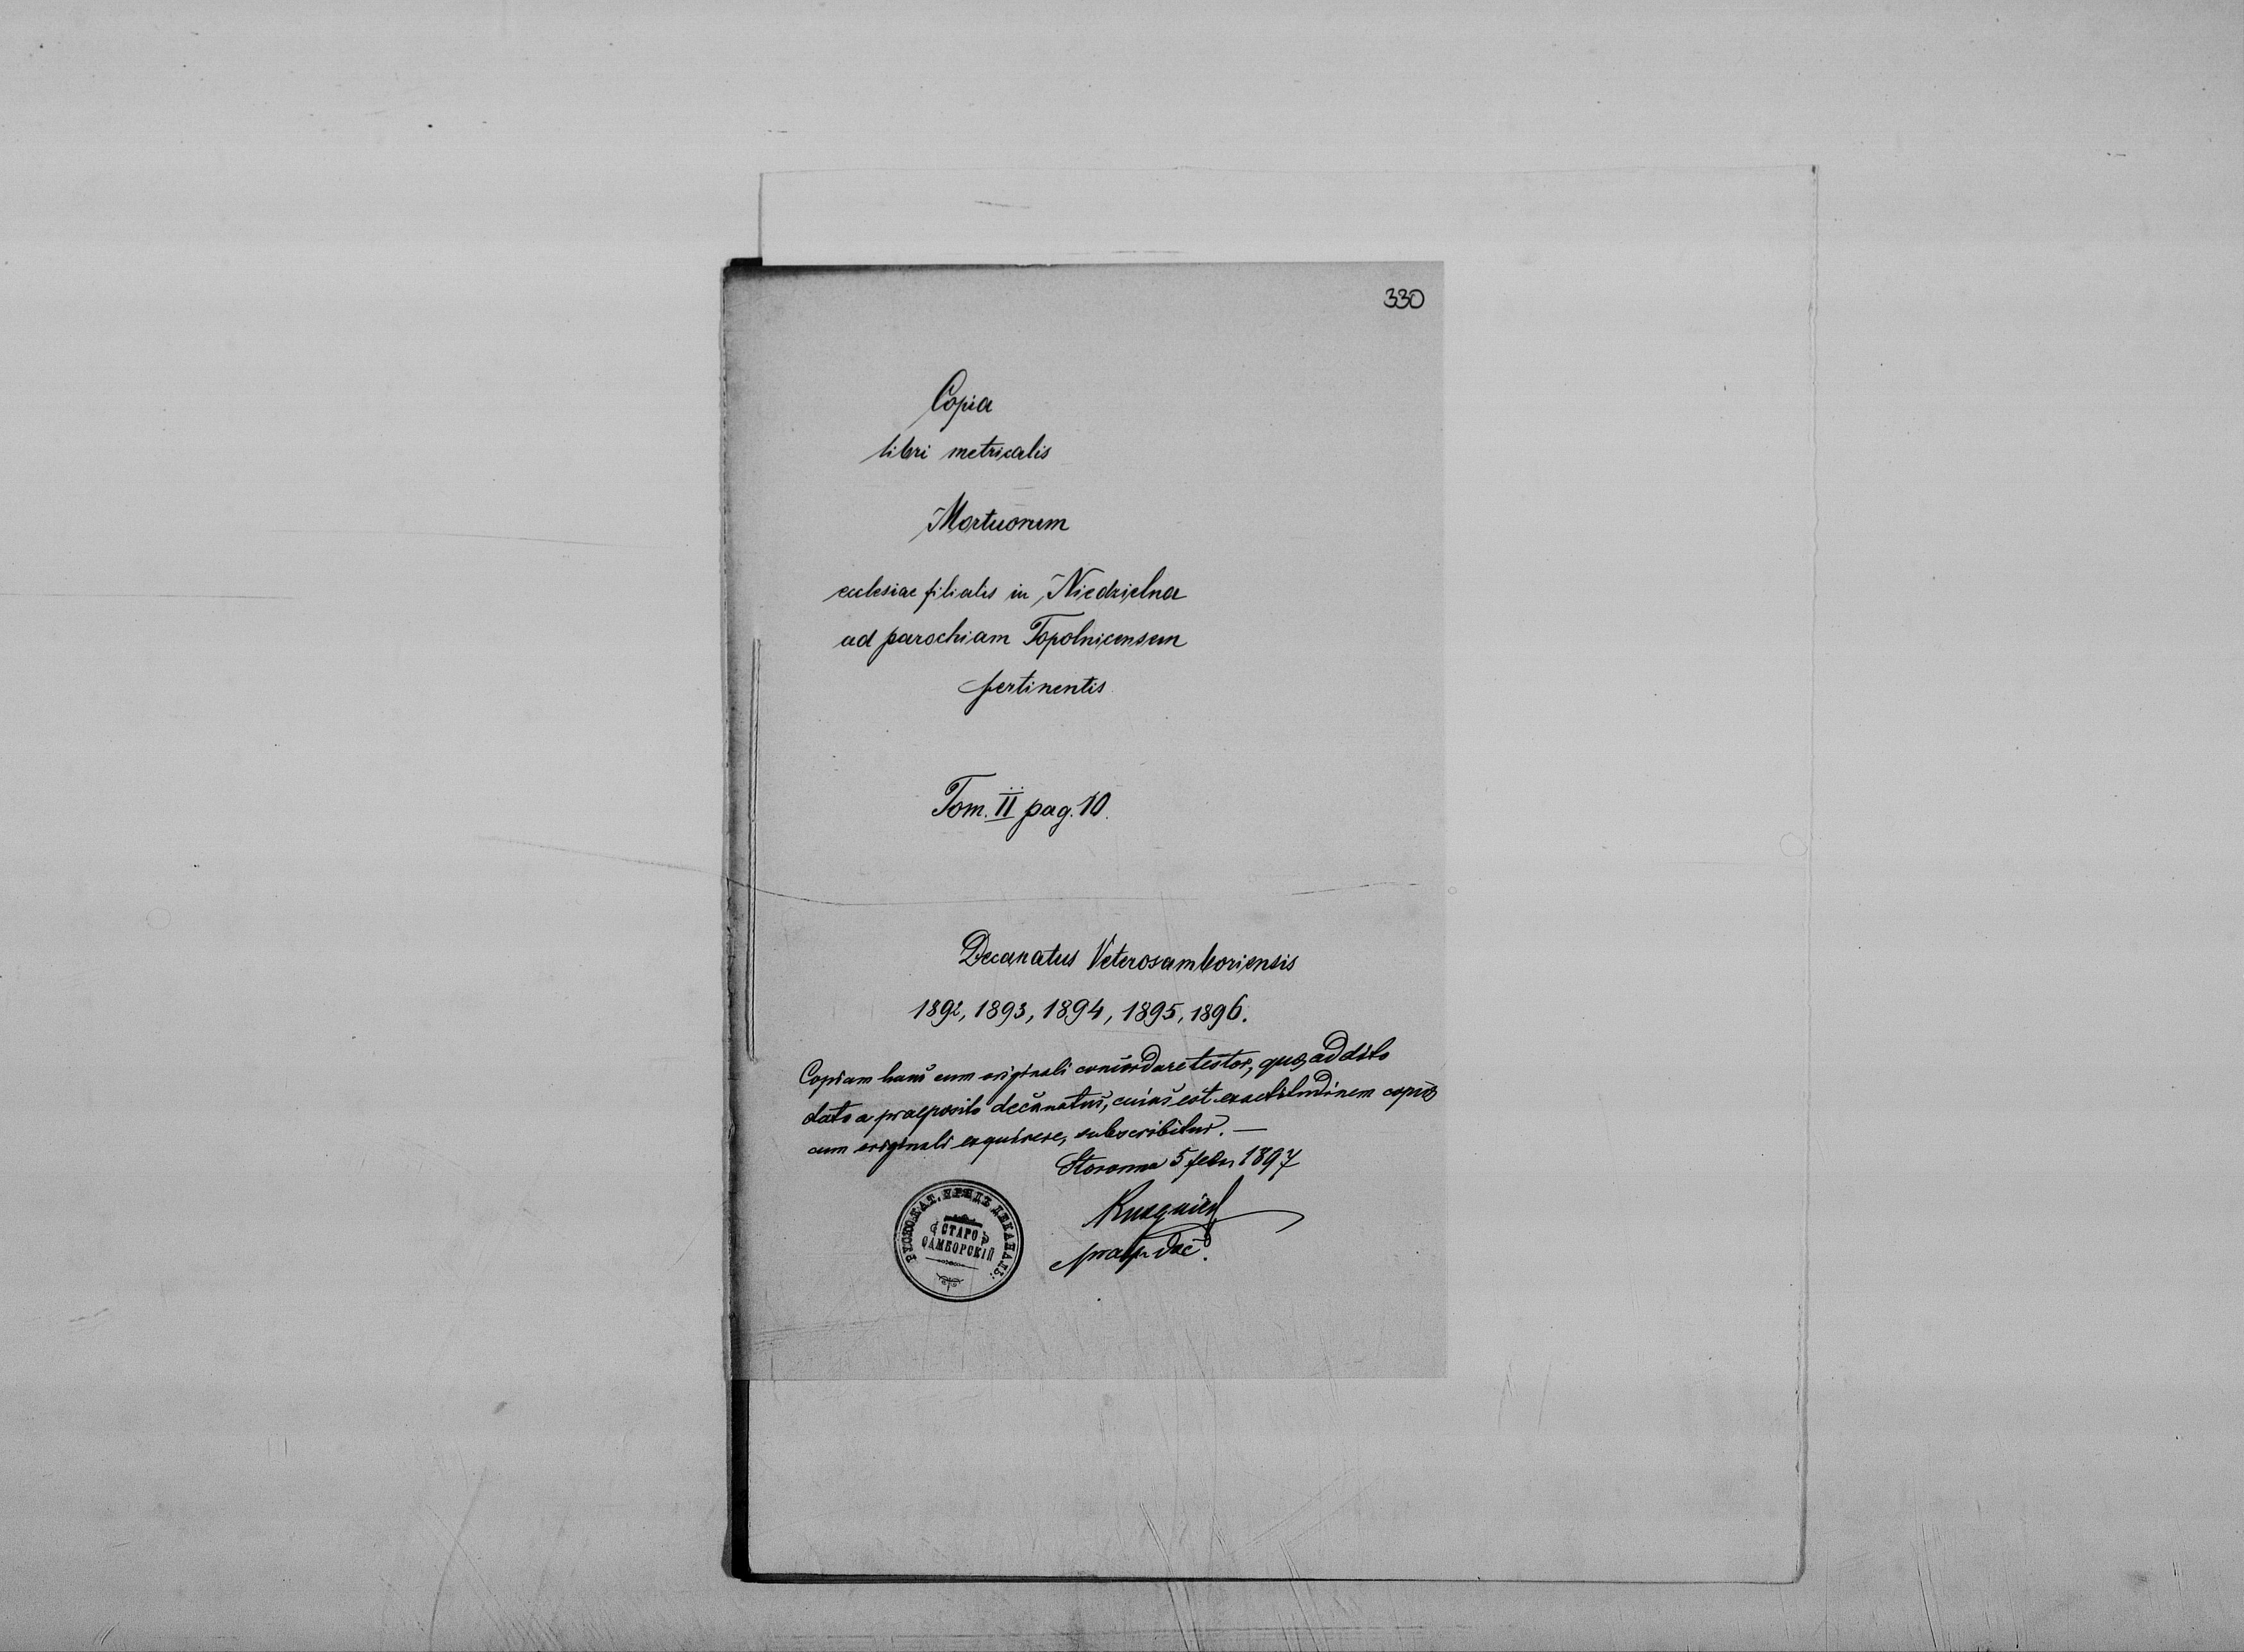 330
Copia
libri metricalis
Mortuorum
ecclesiae filialis in Niedzielna
ad parochiam Topolnicensem
pertinentis
Tom. II pag. 10.
Decanatus Veterosamboriensis
1892, 1893, 1894, 1895, 1896.
Copiam hanc cum originali concordare testor, quo addito
dato a praeposito decanatus, cuius est exactitudinem copiae
cum originali exquirere, subscribitur. —
Storonna 5 febr 1897
praep. dec.
СТАРО
САМБОРСКІЙ